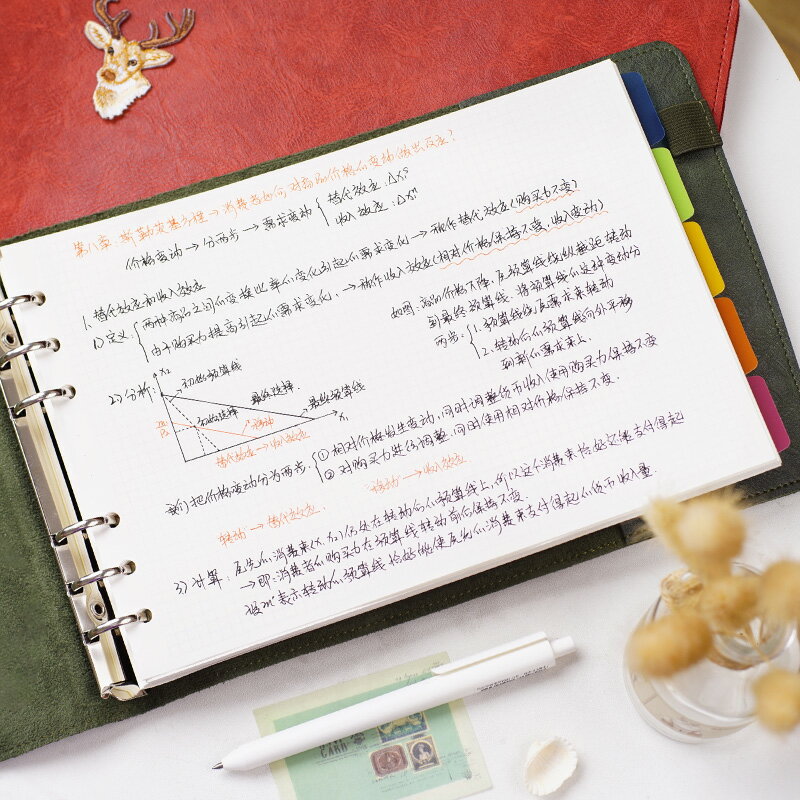 第八章:斯勒茨基方程→消费者如何对商品价格的变动做出反应?
价格变动→分两步→需求变动{替代效应:Δx₁ˢ
收入效应:Δx₁ⁿ
1、替代效应和收入效应
1)定义:{两种商品之间的交换比率的变化引起的需求变化→称作替代效应(购买力不变)
由于购买力提高引起的需求变化→称作收入效应(相对价格保持不变,收入变动)
2)分析:
x₂
初始预算线
最终选择
最终预算线
初始选择
移动
x₁
替代效应→收入效应
如图:商品价格下降,原预算线绕纵截距转动
到最终预算线,将预算线的这种变动分
两步:{1.预算线绕原需求束转动
2.转动后的预算线向外平移
到新的需求束上.
我们把价格变动分为两步:{①相对价格发生变动,同时调整货币收入使购买力保持不变
②对购买力进行调整,同时使相对价格保持不变.
转动→替代效应.
移动→收入效应
3)计算:原先的消费束(x₁,x₂)仍处在转动后的预算线上,所以这个消费束恰好仍能支付得起
→即:消费者的购买力在预算线转动前后保持不变.
设m'表示转动的预算线恰好能使原先的消费束支付得起的货币收入量.
CARD